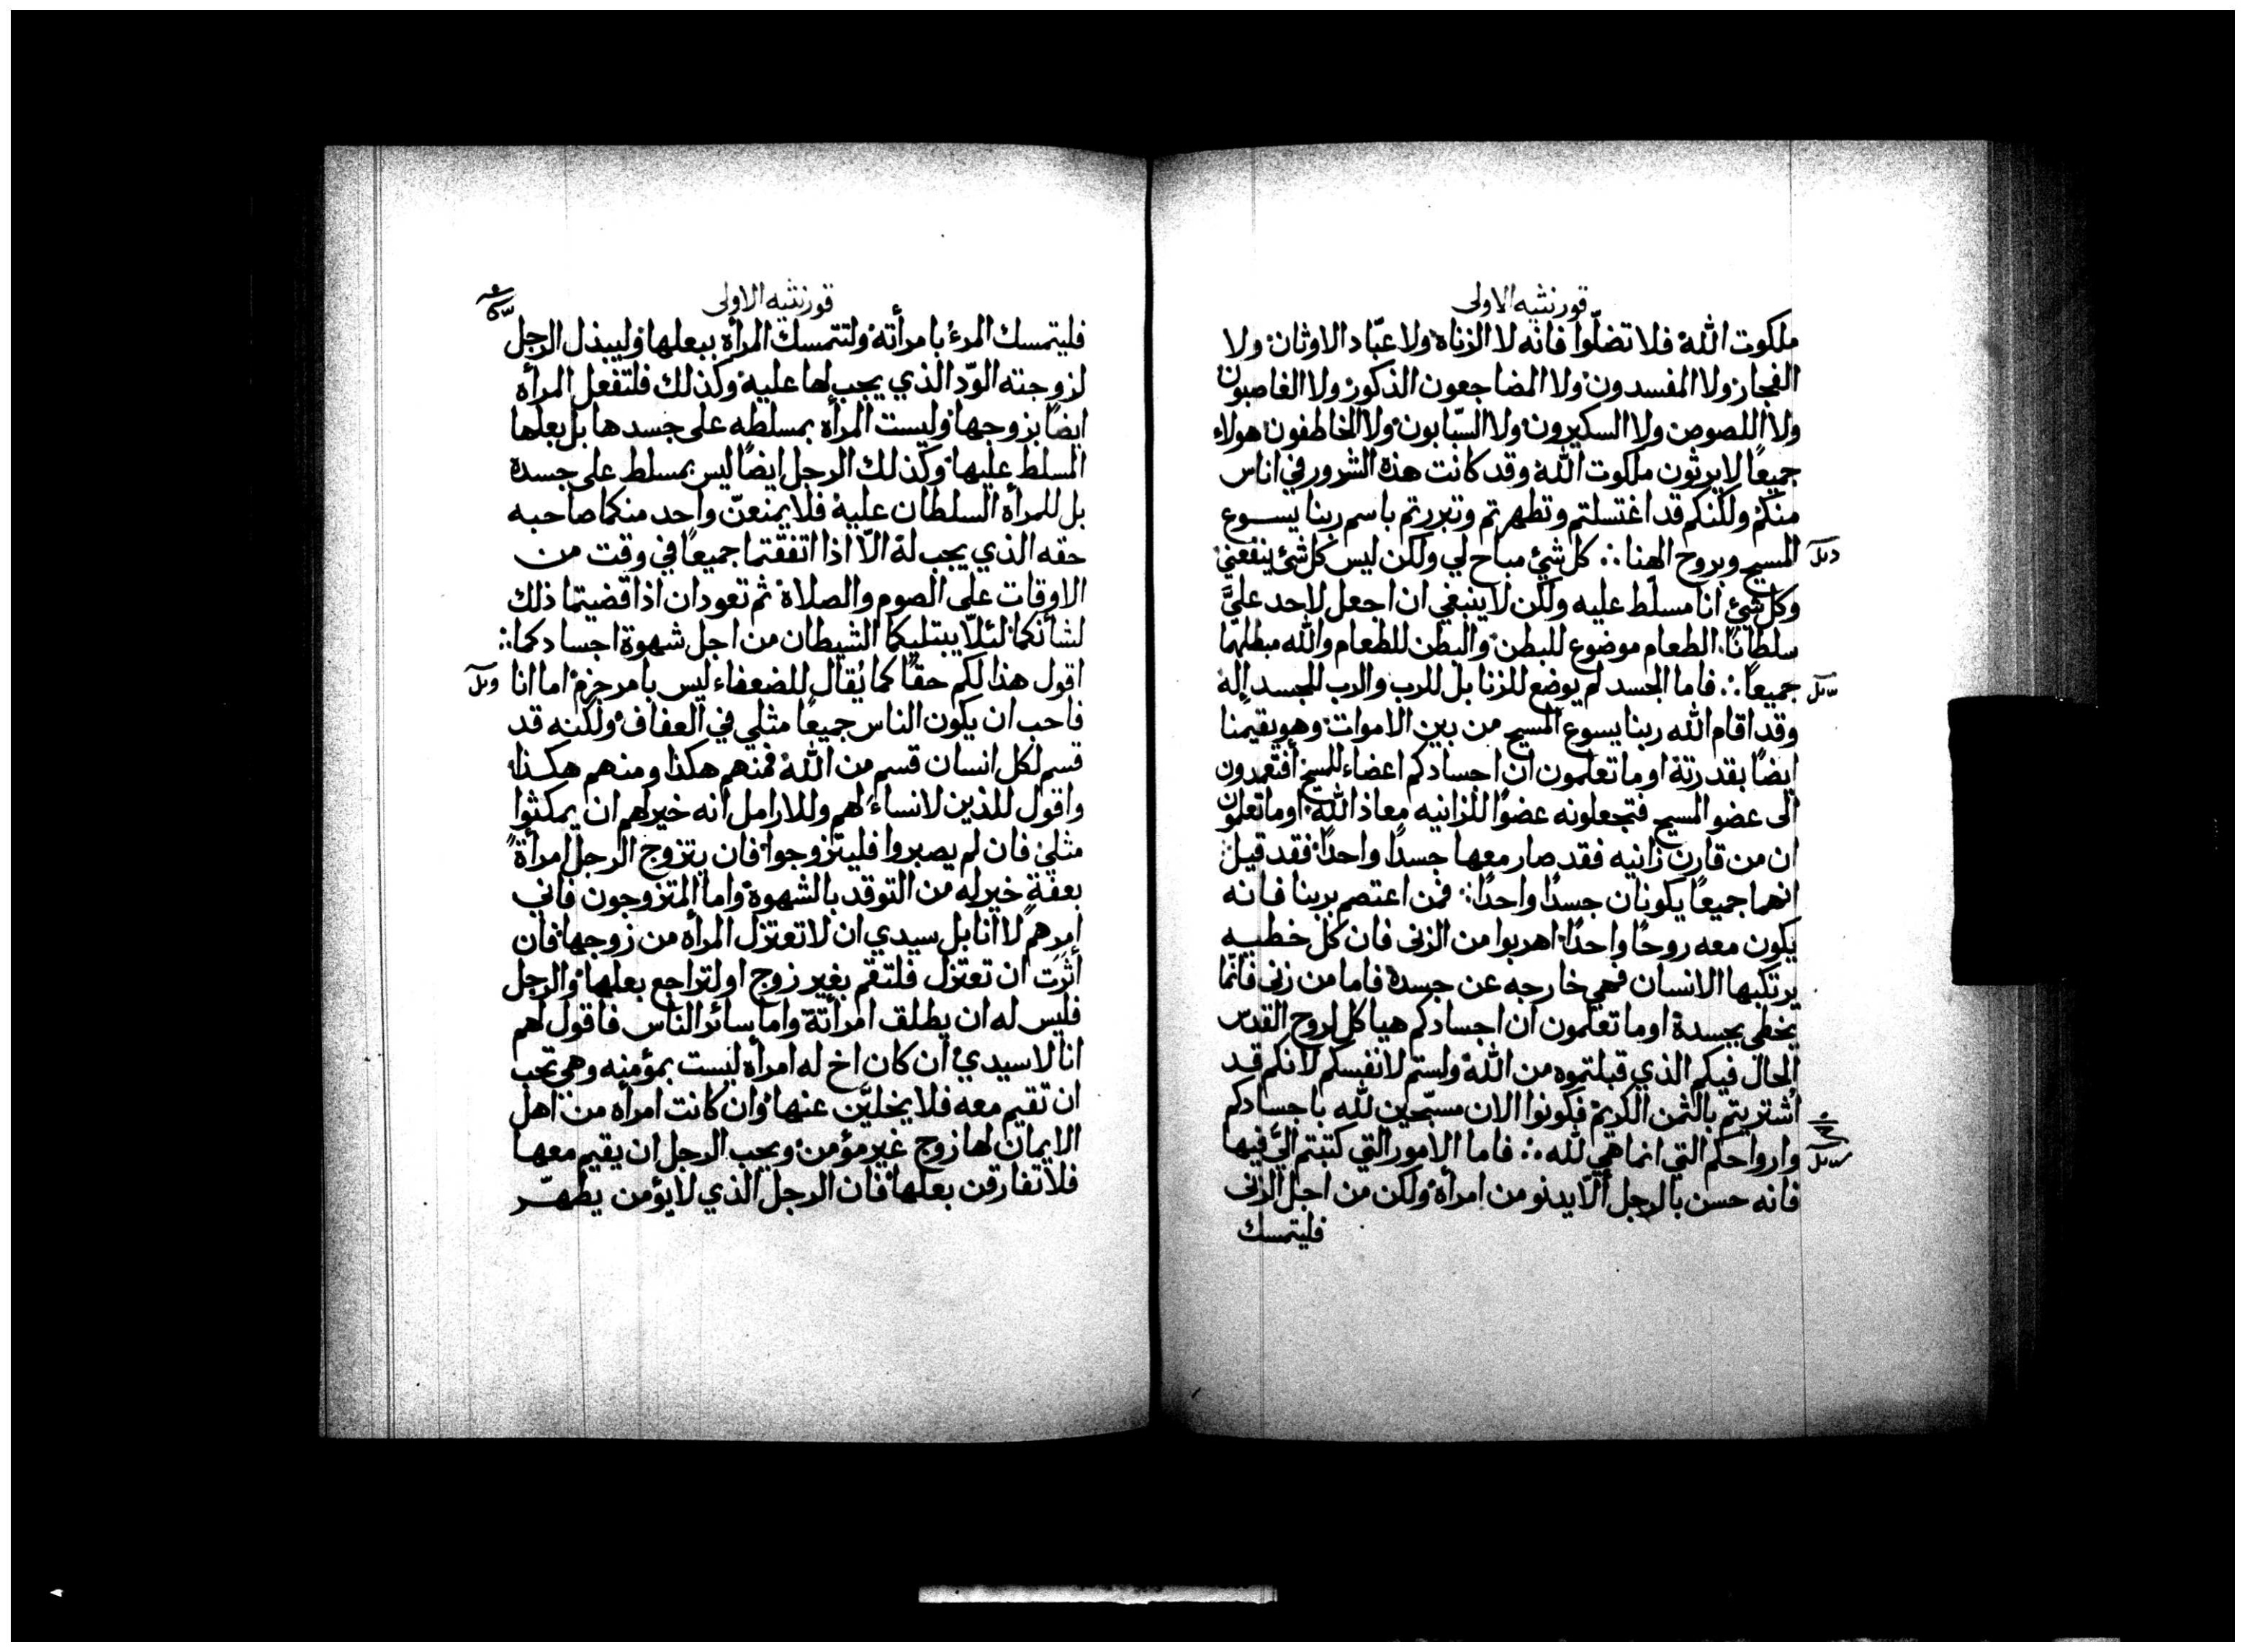 قورنثيه الاولى
ملكوت الله فلا تضلّوا فانه لا الزناة ولا عبّاد الاوثان ولا
الفجار ولا المفسدون ولا المضاجعون الذكور ولا الغاصبون
ولا اللصوص ولا السكيرون ولا السّبابون ولا الخاطفون هولاء
جميعًا لا يرثون ملكوت الله وقد كانت هذة الشرور في اناس
منكم ولكنكم قد اغتسلتم وتطهرتم وتبررتم باسم ربنا يسوع
المسيح وبروح الهنا ∴ كل شيء مباح لي ولكن ليس كل شيء ينفعني
وكل شيء انا مسلط عليه ولكن لا ينبغي ان اجعل لاحد عليَّ
سلطانًا الطعام موضوع للبطن والبطن للطعام والله مبطلهما
جميعًا ∴ فاما الجسد لم يوضع للزنا بل للرب والرب للجسد إله
وقد اقام الله ربنا يسوع المسيح من بين الاموات وهو يقيمنا
ايضًا بقدرتة اوما تعلمون ان اجسادكم اعضاء للمسيح أفتعمدون
الى عضو المسيح فتجعلونه عضوًا للزانيه معاذ الله اوما تعلمون
ان من قارن زانيه فقد صار معها جسدًا واحدًا فقد قيل
انهما جميعًا يكونان جسدًا واحدًا ∴ فمن اعتصم بربنا فانه
يكون معه روحًا واحدًا اهربوا من الزنى فان كل خطيه
يرتكبها الانسان فهي خارجه عن جسدة فاما من زنى فانما
يخطي بجسدة اوما تعلمون ان اجسادكم هياكل لروح القدس
الحال فيكم الذي قبلتموه من الله ولستم لانفسكم لانكم قد
أشتريتم بالثمن الكريم فكونوا الان مسبّحين لله باجسادكم
وارواحكم التي انما هي لله ∴ فاما الامور التي كتبتم اليَّ فيها
فانه حسن بالرجل ألّا يدنو من امرأه ولكن من اجل الزنى
فليتمسك
قورنثيه الاولى
فليتمسك المرءُ بامرأته ولتتمسك المرأه ببعلها وليبذل الرجل
لزوجته الوّد الذي يجب لها عليه وكذلك فلتفعل المرأه
ايضًا بزوجها وليست المرأه بمسلطه على جسدها بل بعلها
المسلط عليها وكذلك الرجل ايضًا ليس بمسلط على جسدة
بل للمرأه السلطان عليه فلا يمنعنّ واحد منكما صاحبه
حقه الذي يجب لة الّا اذا اتفقتما جميعًا في وقت من
الاوقات على الصوم والصلاة ثم تعودان اذا قضيتما ذلك
لشأنكما لئلّا يبتليكما الشيطان من اجل شهوة اجسادكما ∴
اقول هذا لكم حقًا كما يُقال للضعفاء ليس بامر جزم اما انا
فاحب ان يكون الناس جميعًا مثلي في العفاف ولكنه قد
قسم لكل انسان قسم من الله فمنهم هكذا ومنهم هكذا
واقول للذين لا نساءَ لهم وللارامل انه خير لهم ان يمكثوا
مثلي فان لم يصبروا فليتزوجوا فان يتزوج الرجل امرأةً
بعفةٍ خير له من التوقد بالشهوة واما المتزوجون فاني
امرهم لا انا بل سيدي ان لا تعتزل المرأه من زوجها فان
أثرَت ان تعتزل فلتقم بغير زوج او لتراجع بعلها والرجل
فليس له ان يطلق امرأتة واما سائر الناس فاقول لهم
انا لا سيدي ان كان اخ له امرأه ليست بمؤمنه وهي تحب
ان تقيم معه فلا يخليَّن عنها وان كانت امرأه من اهل
الايمان لها زوج غير مؤمن ويحب الرجل ان يقيم معها
فلا تفارقن بعلها فان الرجل الذي لا يؤمن يطهّر